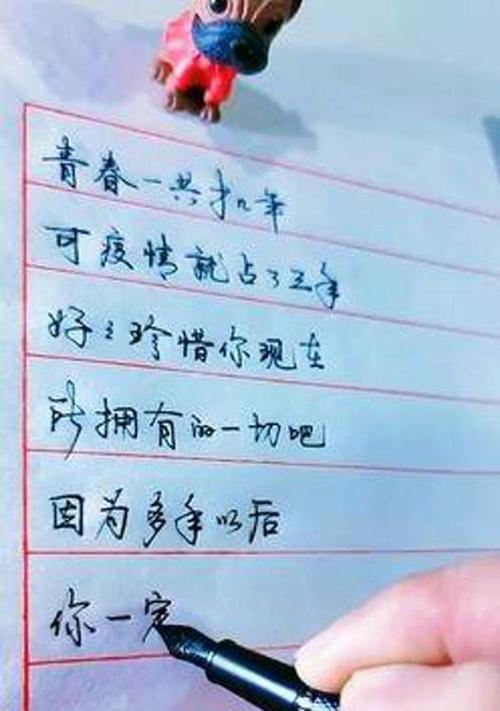 青春一共才几年
可疫情就占了三年
好々珍惜你现在
所拥有的一切吧
因为多年以后
你一定